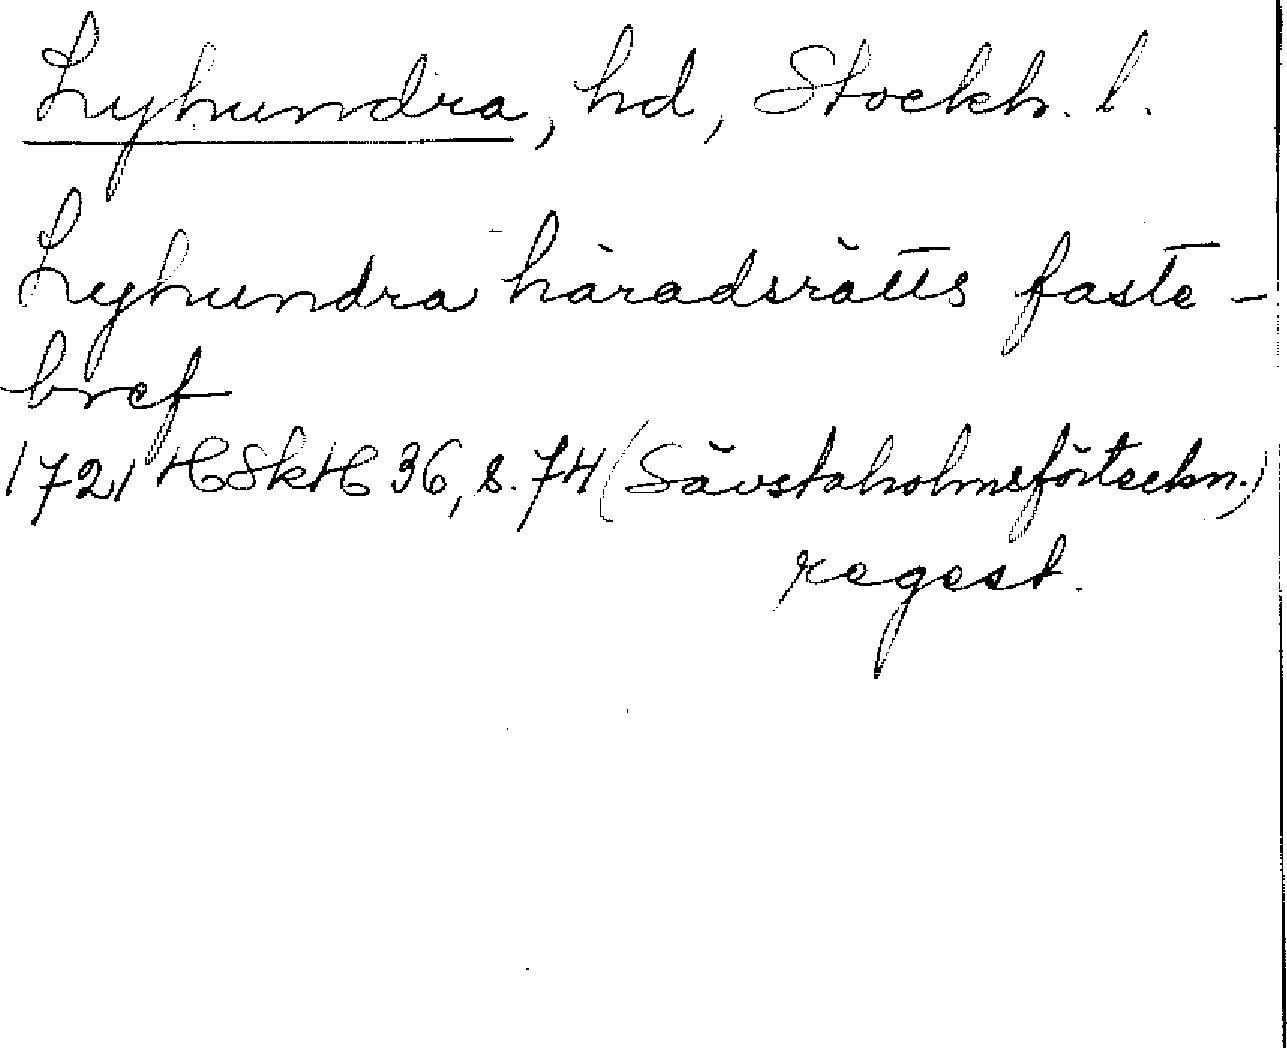 Lyhundra, hd, Stockh. l.
Lyhundra häradsrätts faste-
bref
1721 HSkH 36, s. 74 (Sävstaholmsförteckn.)
regest.